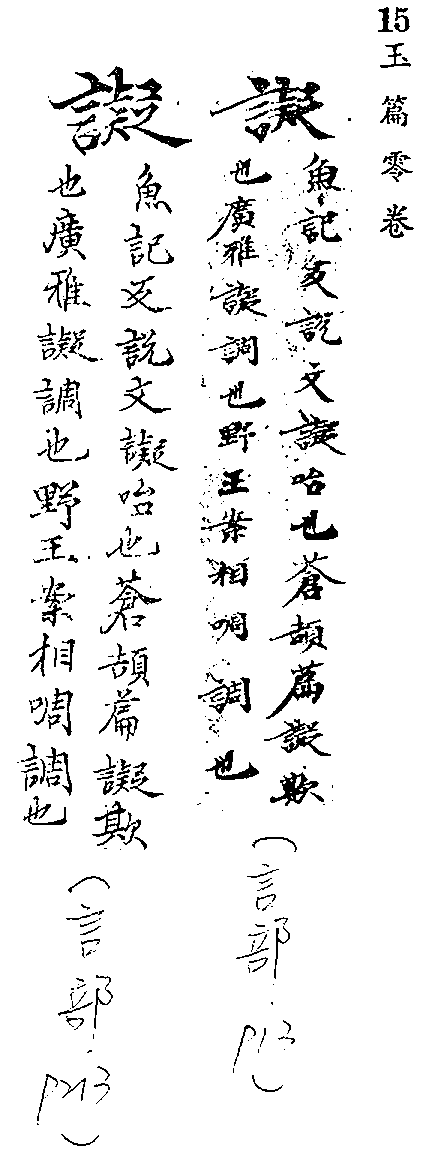 15玉篇零卷
譺
魚記反說文譺咍也蒼頡篇譺欺
也廣雅譺調也野王案相啁調也
（言部．P13）
譺
魚記反說文譺咍也蒼頡篇譺欺
也廣雅譺調也野王案相啁調也
（言部．P213）